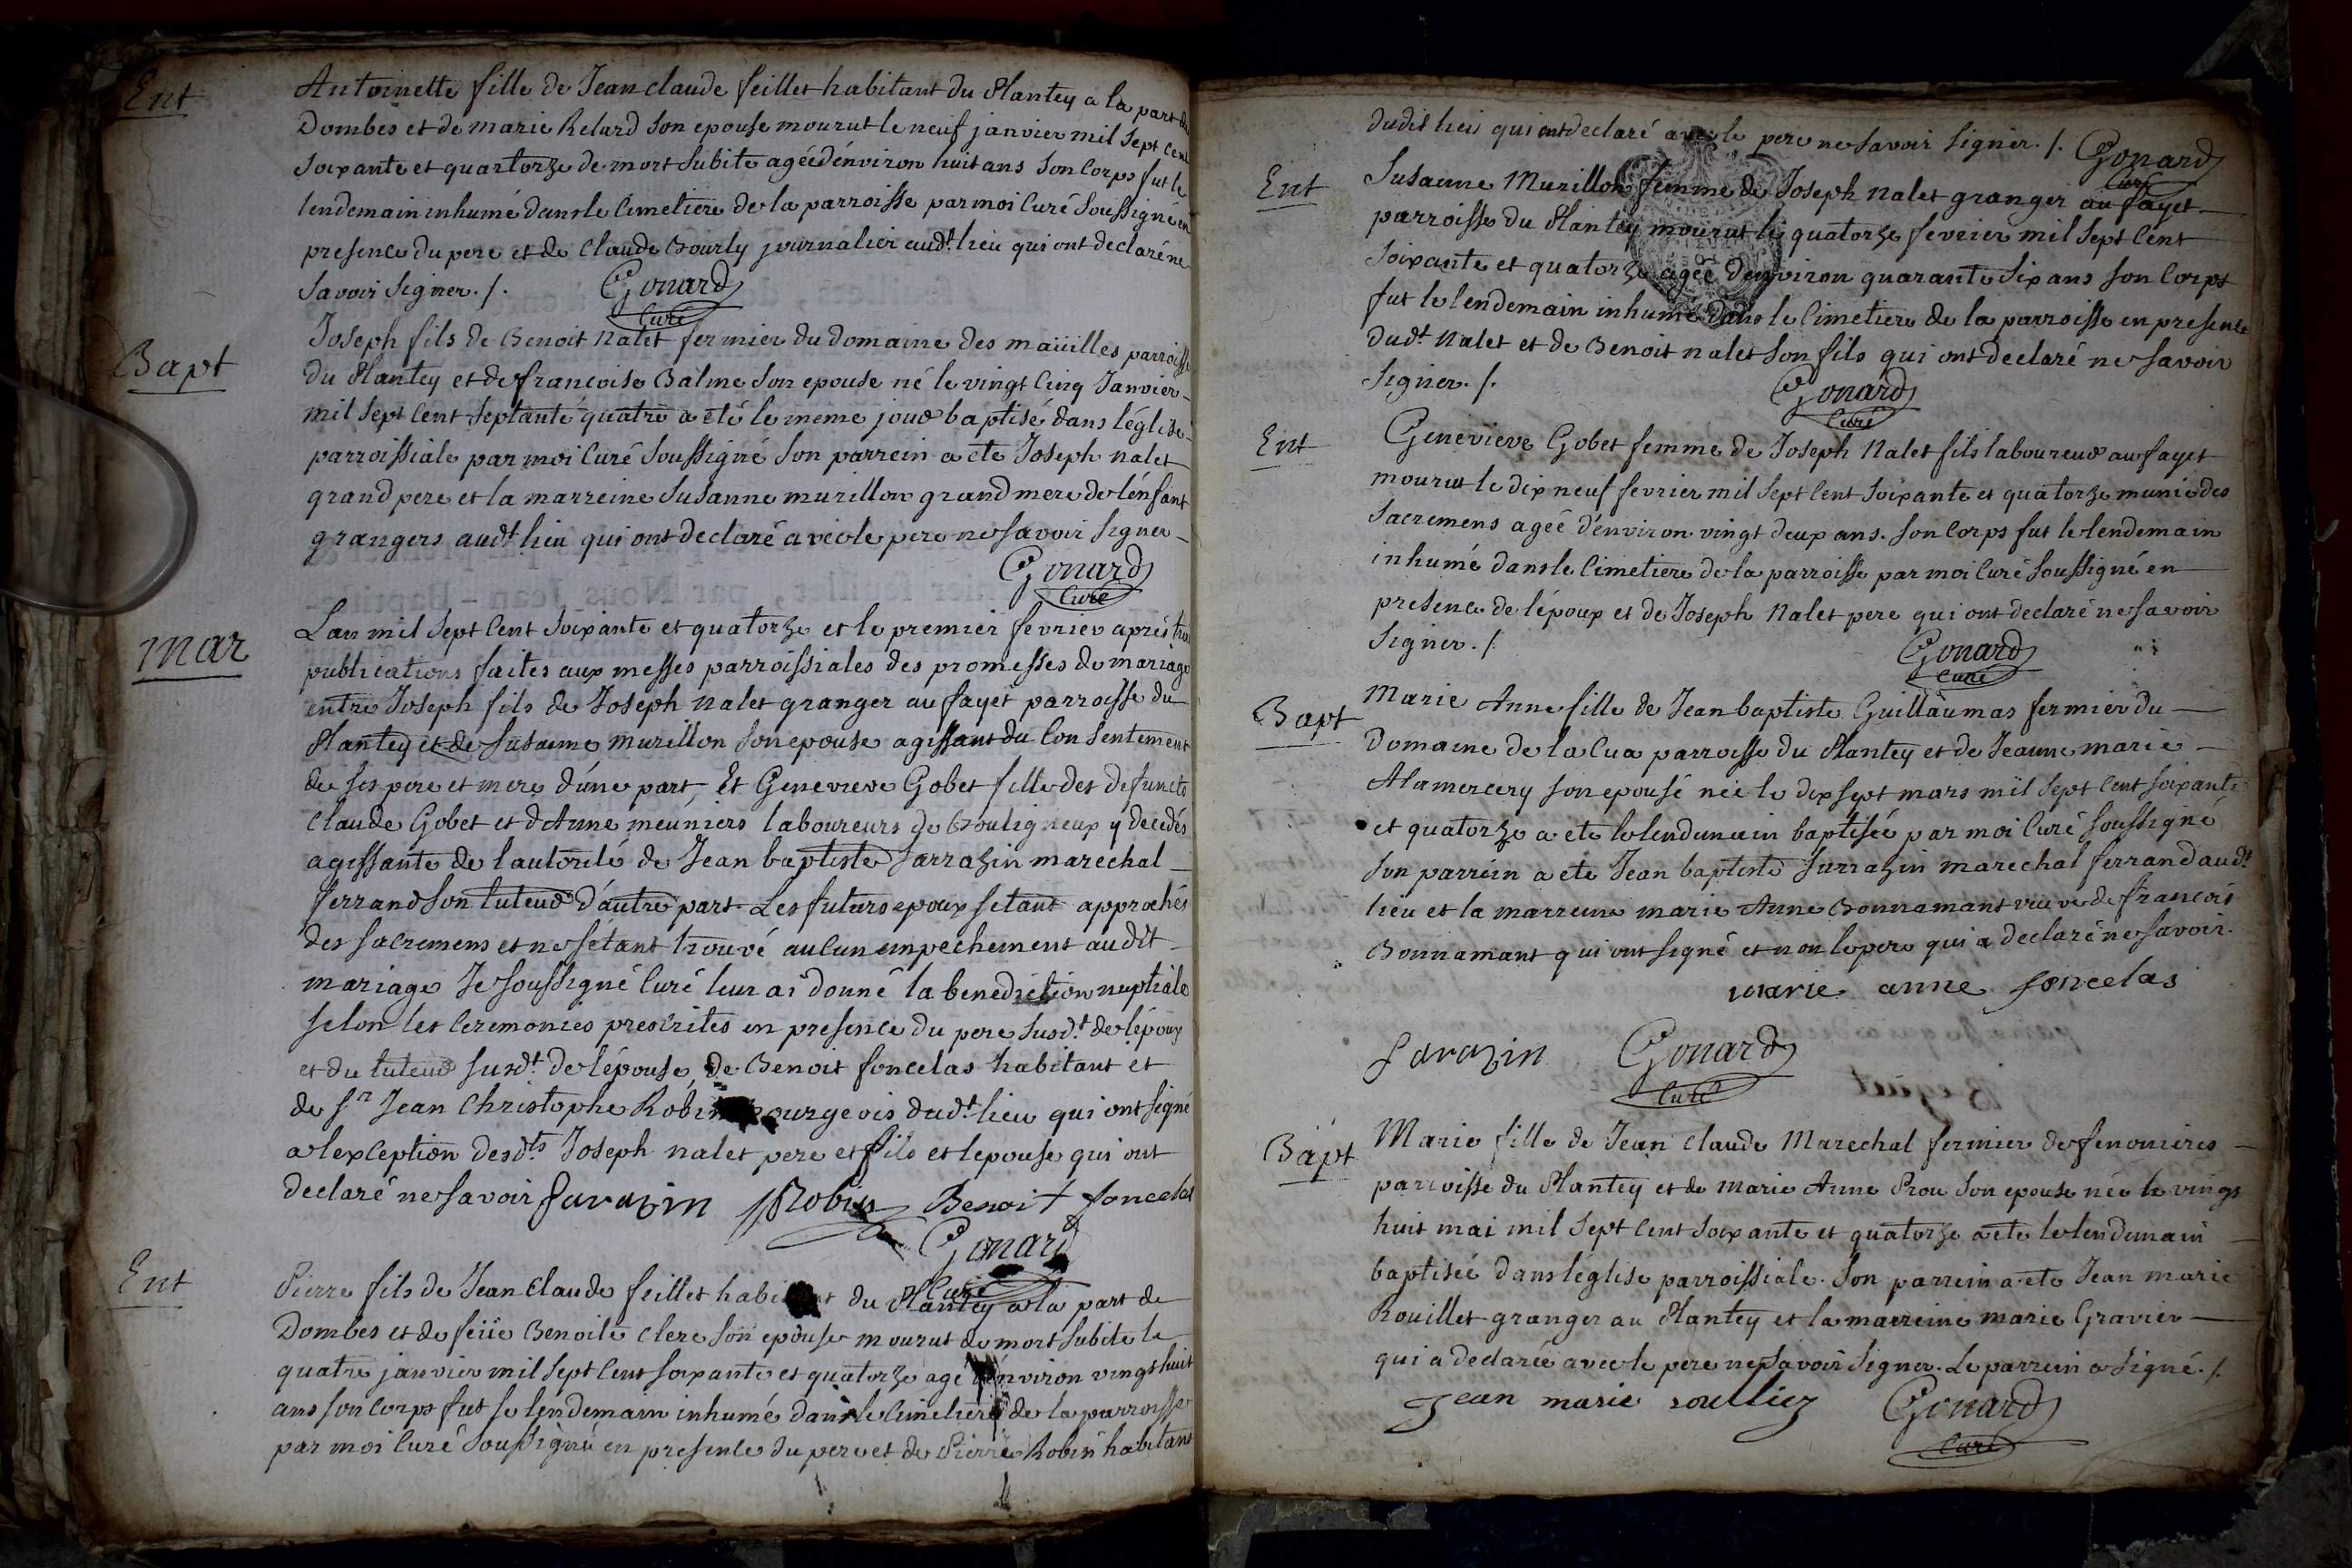 Ent
Antoinette fille de Jean claude feillet habitant du Plantey a la part de
Dombes et de marie Relard son epouse mourut le neuf janvier mil sept cent
soixante et quartorze de mort subite agée d'énviron huit ans son corps fut le
lendemain inhumé dans le cimetiere de la parroisse par moi curé soussigné en
presence du pere et de claude Bourly journalier audt. lieu qui ont declaré ne
savoir signer ./. Gonard
Curé
Bapt
Joseph fils de Benoit Nalet fermier du domaine des maüilles parroisse
du Plantey et de francoise Balme son epouse né le vingt cinq Janvier
mil sept cent septante quatre a eté le meme jour baptisé dans léglise
parroissiale par moi curé soussigné son parrein a ete Joseph nalet
grand pere et la marreine Susanne murillon grand mere de lénfant
grangers audt. lieu qui ont declaré avec le pere ne savoir signer
Gonard
Curé
Mar
Lan mil sept cent soixante et quatorze et le premier fevrier aprés trois
publications faites aux messes parroissiales des promesses de mariage
entre Joseph fils de Joseph nalet granger au fayet parroisse du
Plantey et de Susanne murillon son epouse agissant du consentement
de ses pere et mere d'úne part, Et Genevieve Gobet fille des defuncts
Claude Gobet et d'Anne meuniers laboureurs de Bouligneux y decedés
agissante de lautorité de Jean baptiste Sarrazin marechal
ferrand son tuteur d'áutre part. Les futurs epoux setant approchés
des sacremens et ne setant trouvé aucun empechement audit
mariage Je soussigné curé leur ai donné la benediction nuptiale
selon les ceremonies prescrites en presence du pere susdt. de lépoux
et du tuteur susdt. de lépouse, de Benoit foncelas habitant et
de sr. Jean Christophe Robin bourgeois dudt. lieu qui ont signé
a lexception desdts. Joseph nalet pere et fils et lepouse qui ont
declaré ne savoir Sarazin Robin Benoit foncelas
Gonard
Curé
Ent
Pierre fils de Jean Claude feillet habitant du Plantey a la part de
Dombes et de feüe Benoite clere son epouse mourut de mort subite le
quatre janvier mil sept cent soixante et quatorze agé d'énviron vingt huit
ans son corps fut le lendemain inhumé dans le cimetiere de la parroisse
par moi curé soussigné en presence du pere et de Pierre Robin habitans
dudit lieu qui ont declaré avec le pere ne savoir signer ./. Gonard
Curé
Ent
Susanne Murillon femme de Joseph nalet granger au fayet
parroisse du Plantey mourut le quatorze fevrier mil sept cent
soixante et quatorze agée d'environ quarante six ans son corps
fut le lendemain inhumé dans le cimetiere de la parroisse en presence
dudt. nalet et de Benoit nalet son fils qui ont déclaré ne savoir
signer ./. Gonard
Curé
Ent
Genevieve Gobet femme de Joseph Nalet fils laboureur au fayet
mourut le dix neuf fevrier mil sept cent soixante et quatorze munie des
sacremens agée d'énviron vingt deux ans. son corps fut le lendemain
inhumé dans le cimetiere de la parroisse par moi curé soussigné en
presence de lépoux et de Joseph Nalet pere qui ont declaré ne savoir
signer ./. Gonard
Curé
Bapt
Marie Anne fille de Jean baptiste Guillaumas fermier du
Domaine de la Cua parroisse du Plantey et de Jeanne marie
Alamercery son epouse née le dix sept mars mil sept cent soixante
et quatorze a ete le lendemain baptisée par moi curé soussigné
son parrein a ete Jean baptiste Surrazin marechal ferrand audt.
lieu et la marreine marie Anne Bonnamant veuve de francois
Bonnamant qui ont signé et non le pere qui a declaré ne savoir.
marie anne foncelas
Sarazin Gonard
Curé
Bapt
Marie fille de Jean Claude Marechal fermier de fenonieres
parroisse du Plantey et de marie Anne Prou son epouse née le vingt
huit mai mil sept cent soixante et quatorze a ete le lendemain
baptisée dans léglise parroissiale. son parrein a ete Jean marie
Rouillet granger au Plantey et la marreine marie Gravier
qui a declarée avec le pere ne savoir signer. Le parrein a signé ./.
Jean marie roullier Gonard
Curé